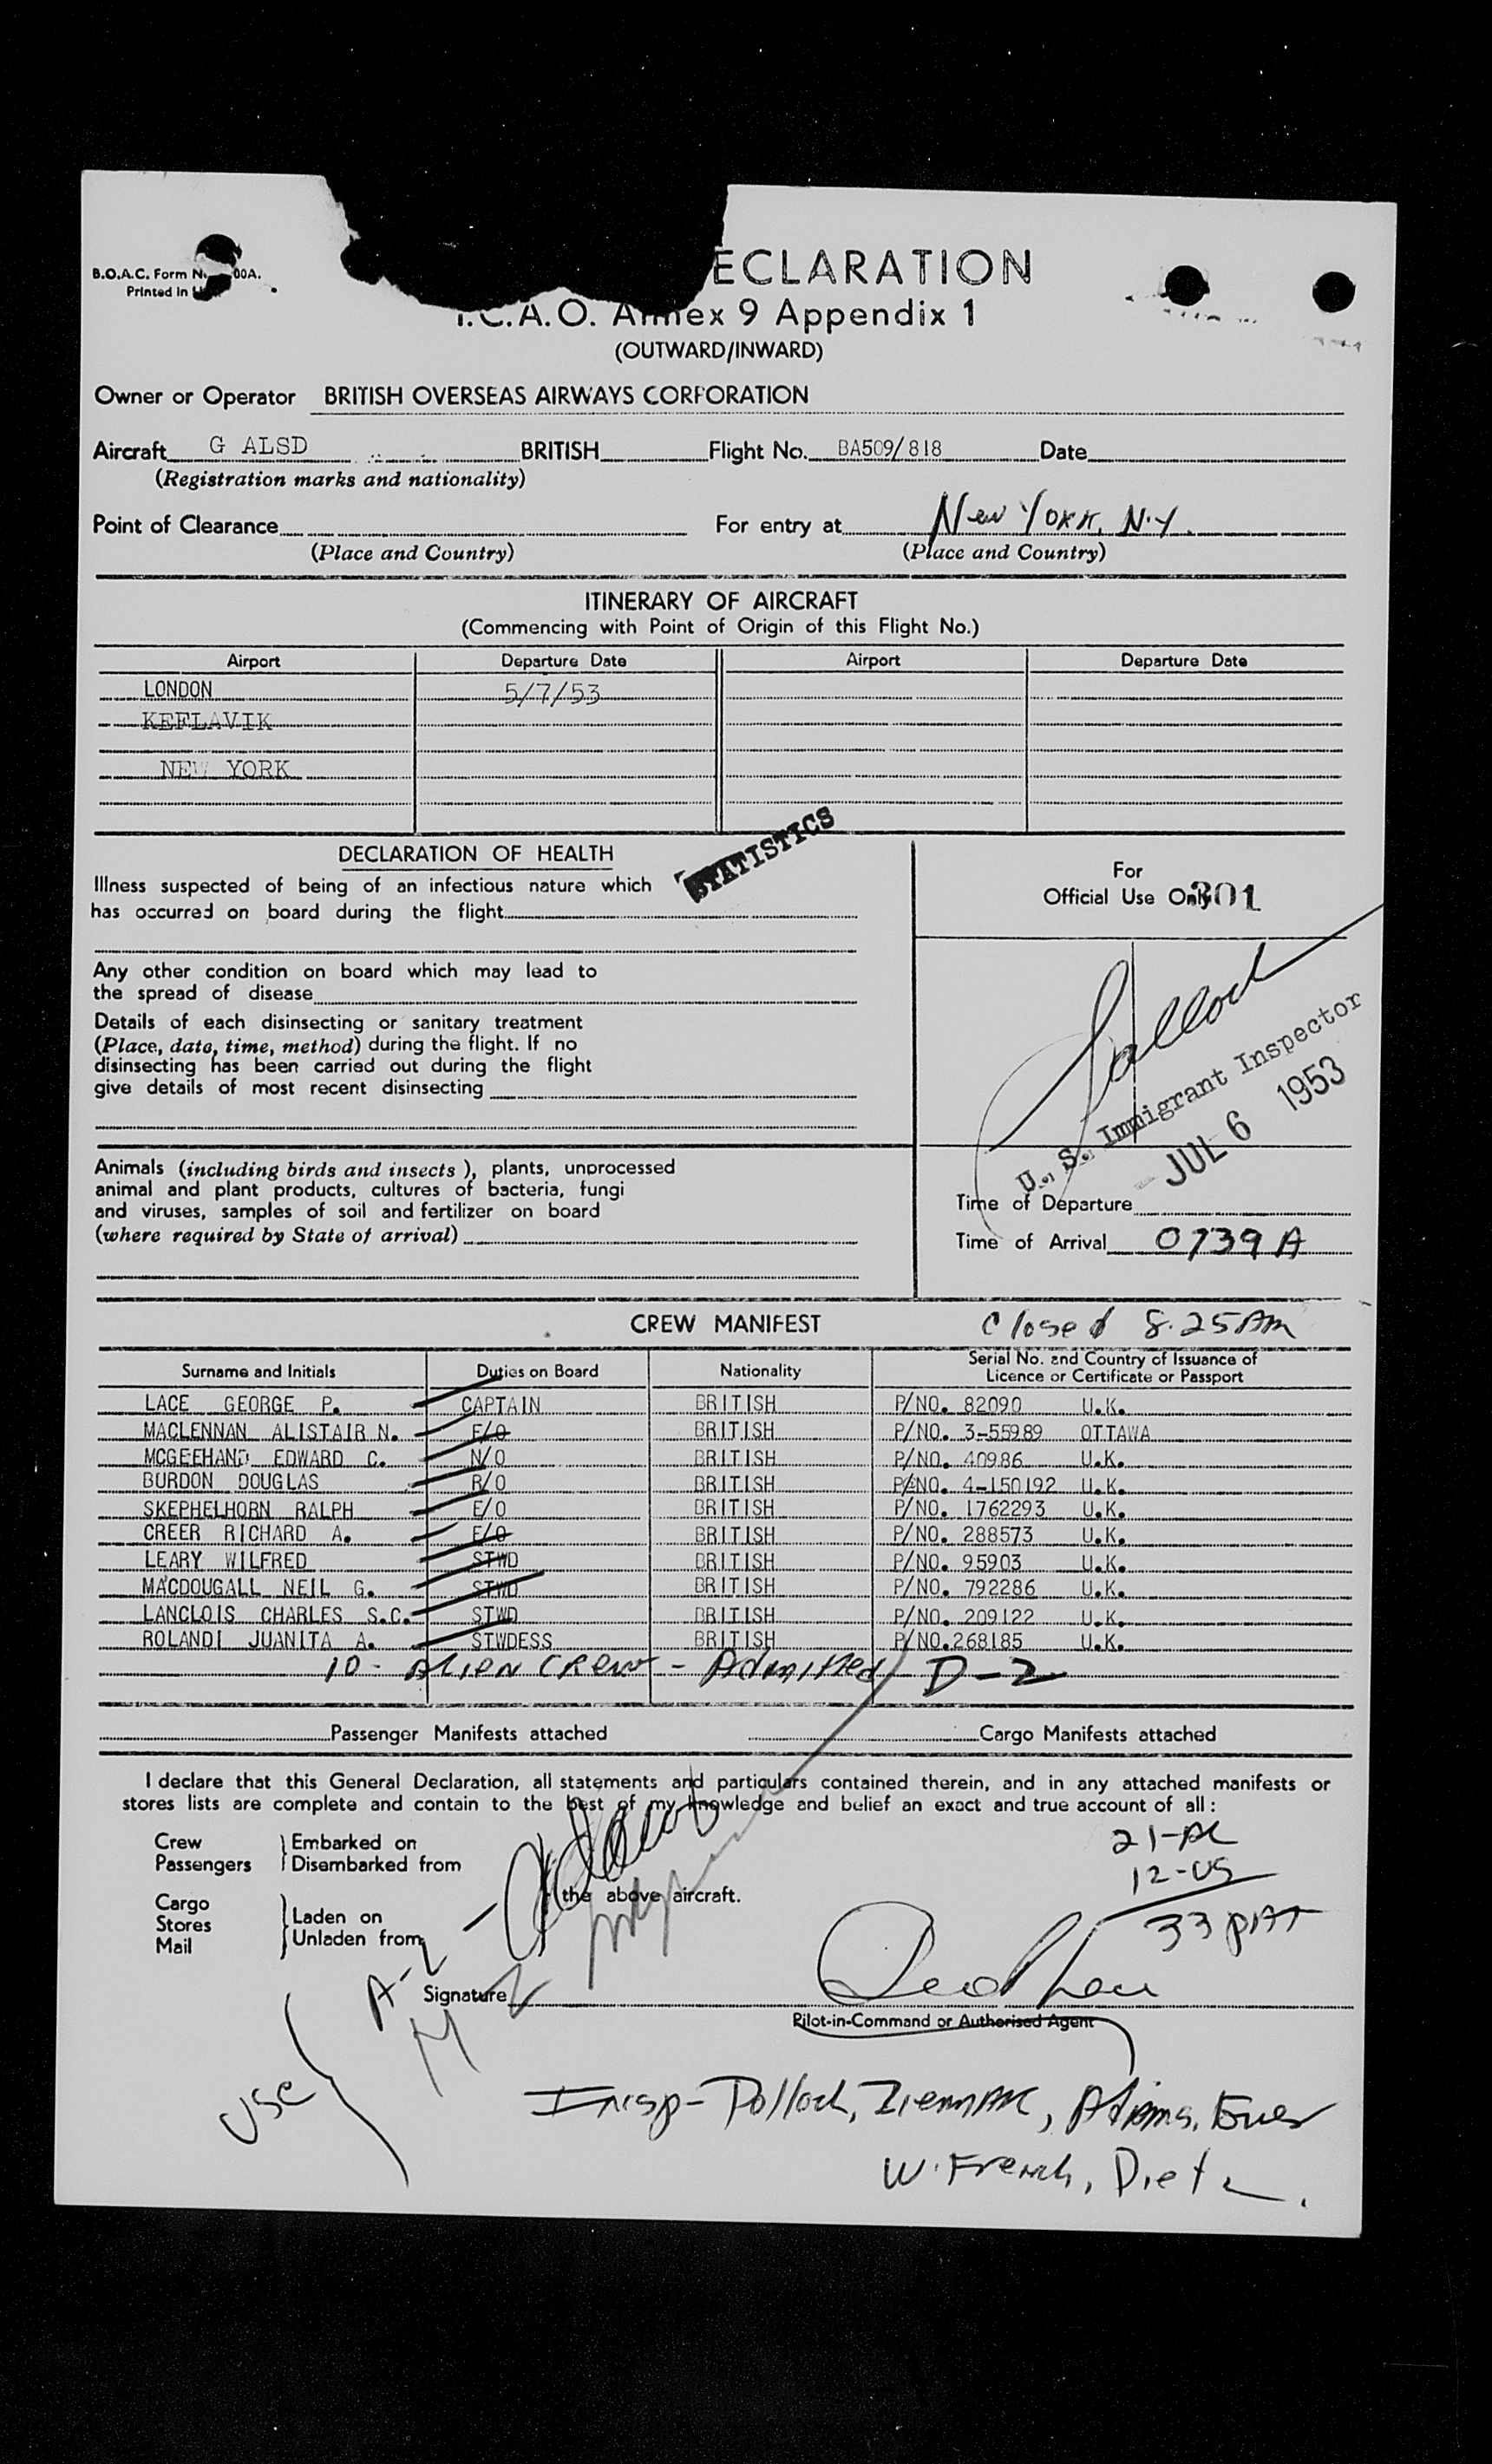 ECLARATION
B.O.A.C. Form N 00A.
Printed in
I.C.A.O. Annex 9 Appendix 1
(OUTWARD/INWARD)
Owner or Operator BRITISH OVERSEAS AIRWAYS CORPORATION
Aircraft G ALSD BRITISH Flight No. BA509/818 Date
(Registration marks and nationality)
Point of Clearance For entry at New York, N.Y.
(Place and Country) (Place and Country)
ITINERARY OF AIRCRAFT
(Commencing with Point of Origin of this Flight No.)
Airport Departure Date Airport Departure Date
LONDON 5/7/53
KEFLAVIK
NEW YORK
STATISTICS
DECLARATION OF HEALTH
Illness suspected of being of an infectious nature which
has occurred on board during the flight
For
Official Use Only 301
Any other condition on board which may lead to
the spread of disease
Details of each disinsecting or sanitary treatment
(Place, date, time, method) during the flight. If no
disinsecting has been carried out during the flight
give details of most recent disinsecting
Pollock
U. S. Immigrant Inspector
JUL 6 1953
Animals (including birds and insects), plants, unprocessed
animal and plant products, cultures of bacteria, fungi
and viruses, samples of soil and fertilizer on board
(where required by State of arrival)
Time of Departure
Time of Arrival 0739 A
CREW MANIFEST Closed 8.25 AM
Surname and Initials Duties on Board Nationality Serial No. and Country of Issuance of
Licence or Certificate or Passport
LACE GEORGE P. CAPTAIN BRITISH P/NO. 82090 U.K.
MACLENNAN ALISTAIR N. F/O BRITISH P/NO. 3-55989 OTTAWA
MCGEEHAND EDWARD C. N/O BRITISH P/NO. 40986 U.K.
BURDON DOUGLAS R/O BRITISH P/NO. 4-150192 U.K.
SKEPHELHORN RALPH E/O BRITISH P/NO. 1762293 U.K.
CREER RICHARD A. E/O BRITISH P/NO. 288573 U.K.
LEARY WILFRED STWD BRITISH P/NO. 95903 U.K.
MACDOUGALL NEIL G. STWD BRITISH P/NO. 792286 U.K.
LANCLOIS CHARLES S.C. STWD BRITISH P/NO. 209122 U.K.
ROLANDI JUANITA A. STWDESS BRITISH P/NO.268185 U.K.
10 - Alien Crew - Admitted D-2
Passenger Manifests attached Cargo Manifests attached
I declare that this General Declaration, all statements and particulars contained therein, and in any attached manifests or
stores lists are complete and contain to the best of my knowledge and belief an exact and true account of all :
Crew
Passengers
Embarked on
Disembarked from
Cargo
Stores
Mail
Laden on
Unladen from
the above aircraft.
21-AL
12-US
33 PAX
A-2
M 2
USC
Signature
Pilot-in-Command or Authorised Agent
Insp- Pollock, Adams,
W. French, Dietz.